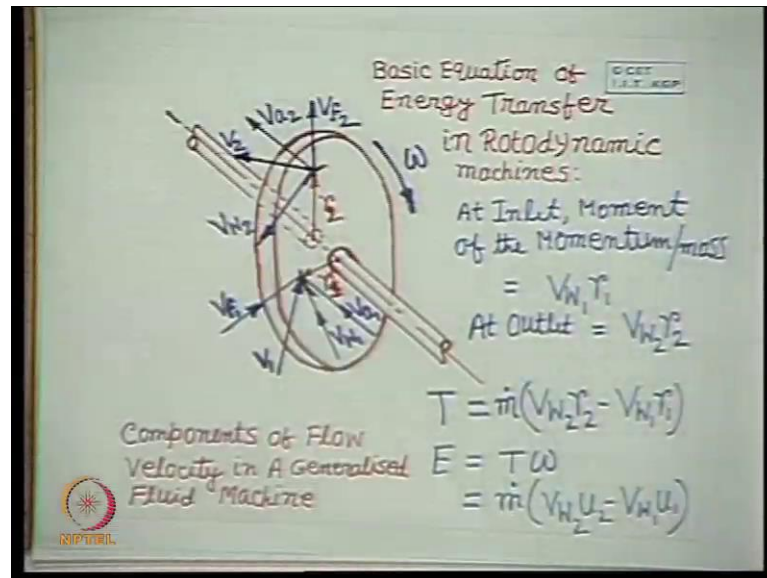 Basic Equation of
Energy Transfer
in Rotodynamic
machines:
© CET
I.I.T. KGP
At Inlet, Moment
of the Momentum/mass
= V_{W_1} r_1
At Outlet = V_{W_2} r_2
T = ṁ(V_{W_2} r_2 - V_{W_1} r_1)
E = Tω
= ṁ(V_{W_2} U_2 - V_{W_1} U_1)
V_{a_2}
V_{F_2}
V_2
ω
V_{W_2}
r_2
r_1
V_{F_1}
V_1
V_{W_1}
Components of Flow
Velocity in A Generalised
Fluid Machine
NPTEL